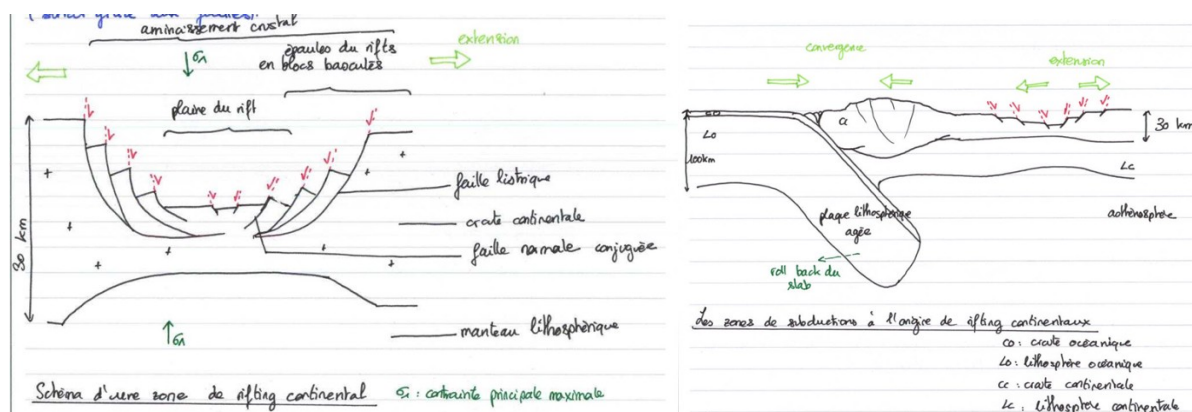 amincissement crustal
σ1
épaules du rifts
en blocs basculés
extension
plaine du rift
30 km
faille listrique
croûte continentale
faille normale conjuguée
manteau lithosphérique
σ1
Schéma d'une zone de rifting continental
σ1 : contrainte principale maximale
convergence
extension
CO
LO
100km
a
30 km
Lc
plaque lithosphérique
agée
asthénosphère
roll back du
slab
Les zones de subductions à l'origine de rifting continentaux
CO : croute océanique
LO : lithosphère océanique
CC : croute continentale
LC : lithosphère continentale